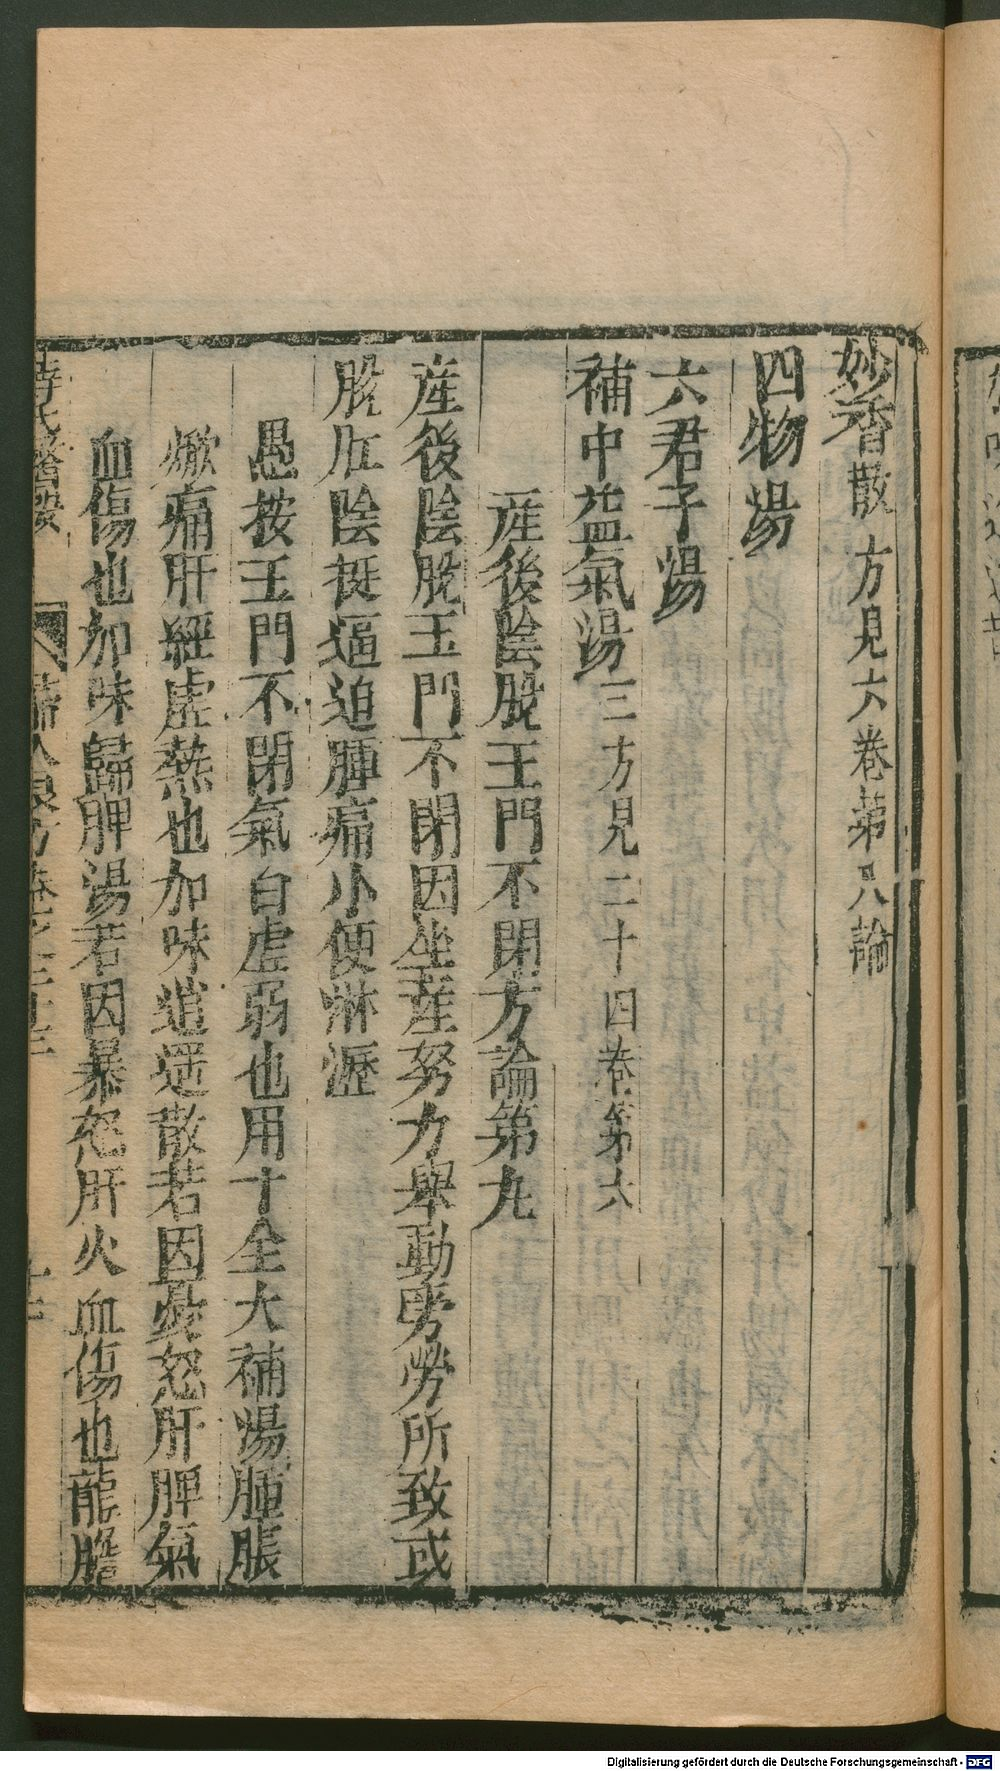 妙香散 方見六卷第八論
四物湯
六君子湯
補中益氣湯 三方見二十四卷第六
產後陰脫王門不閉方論第九
產後陰脫玉門不閉因坐產努力舉動房勞所致或
脫肛陰挺逼迫腫痛小便淋瀝
愚按玉門不閉氣白虛弱也用十全大補湯腫脹
焮痛肝經虛熱也加味逍遙散若因憂怒肝脾氣
血傷也加味歸脾湯若因暴怒肝火血傷也龍膽
婦人良方卷之二十三
Digitalisierung gefördert durch die Deutsche Forschungsgemeinschaft - DFG